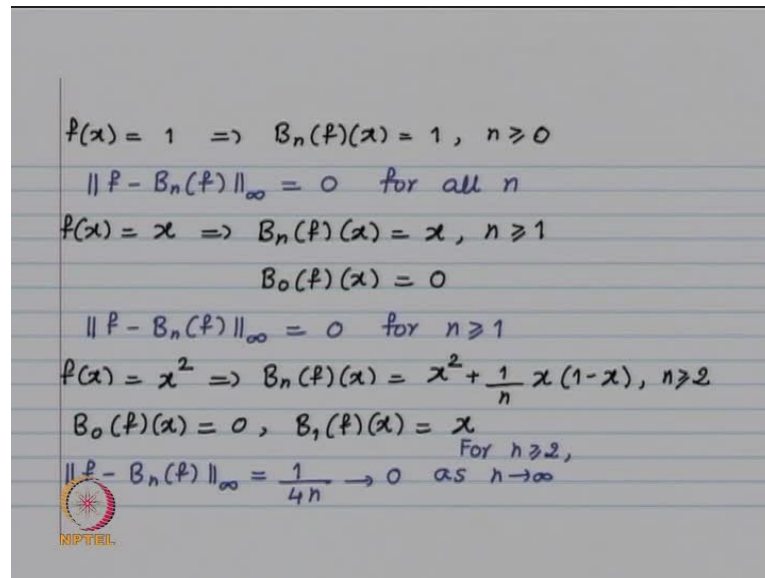 f(x) = 1 => Bn(f)(x) = 1, n ≥ 0
|| f - Bn(f) ||∞ = 0 for all n
f(x) = x => Bn(f)(x) = x, n ≥ 1
B0(f)(x) = 0
|| f - Bn(f) ||∞ = 0 for n ≥ 1
f(x) = x² => Bn(f)(x) = x² + 1/n x(1-x), n ≥ 2
B0(f)(x) = 0, B1(f)(x) = x
For n ≥ 2,
|| f - Bn(f) ||∞ = 1/4n → 0 as n → ∞
NPTEL